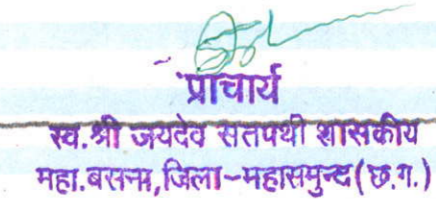 प्राचार्य
स्व.श्री जयदेव सतपथी शासकीय
महा.बसना,जिला-महासमुन्द(छ.ग.)